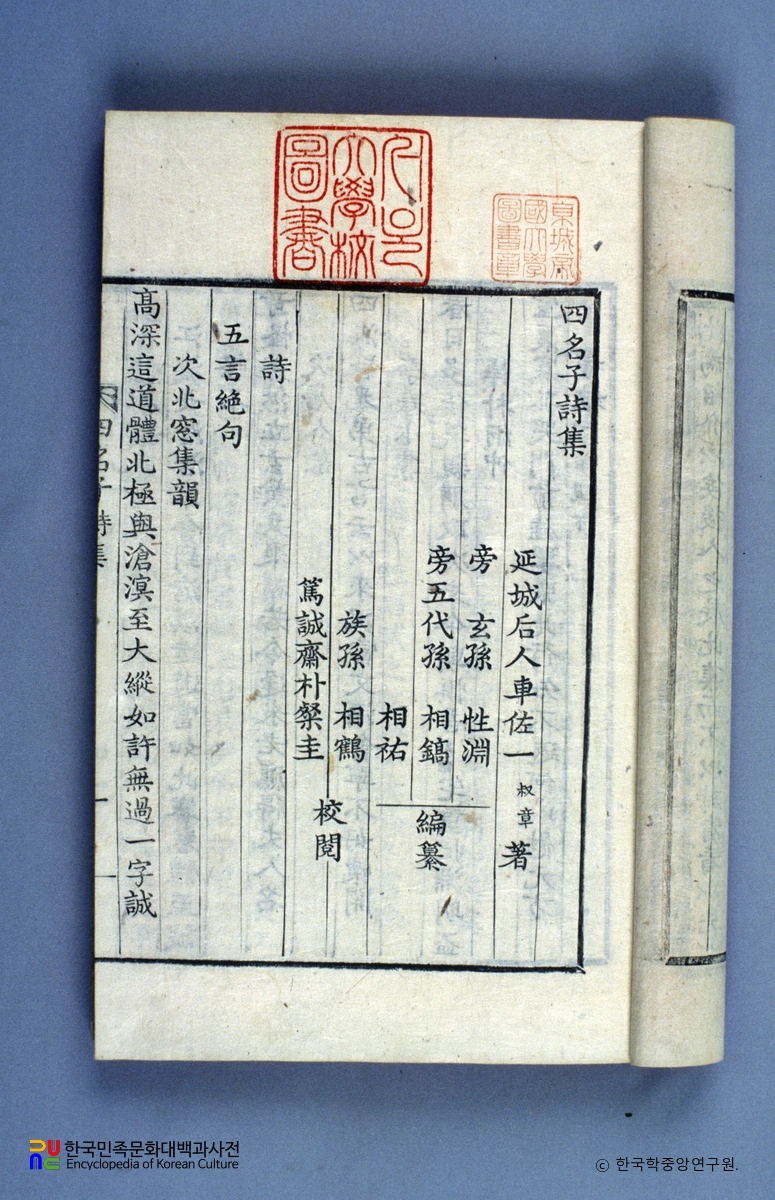 四名子詩集
延城后人車佐一 叔章 著
旁 玄孫 性淵
旁五代孫 相鎬
相祐
編纂
族孫 相鶴
篤誠齋朴粲圭
校閱
詩
五言絶句
次北窓集韻
高深這道體北極與滄溟至大縱如許無過一字誠
四名子詩集
一
大學校
圖書
東城帝
國大學
圖書章
한국민족문화대백과사전
Encyclopedia of Korean Culture
© 한국학중앙연구원.